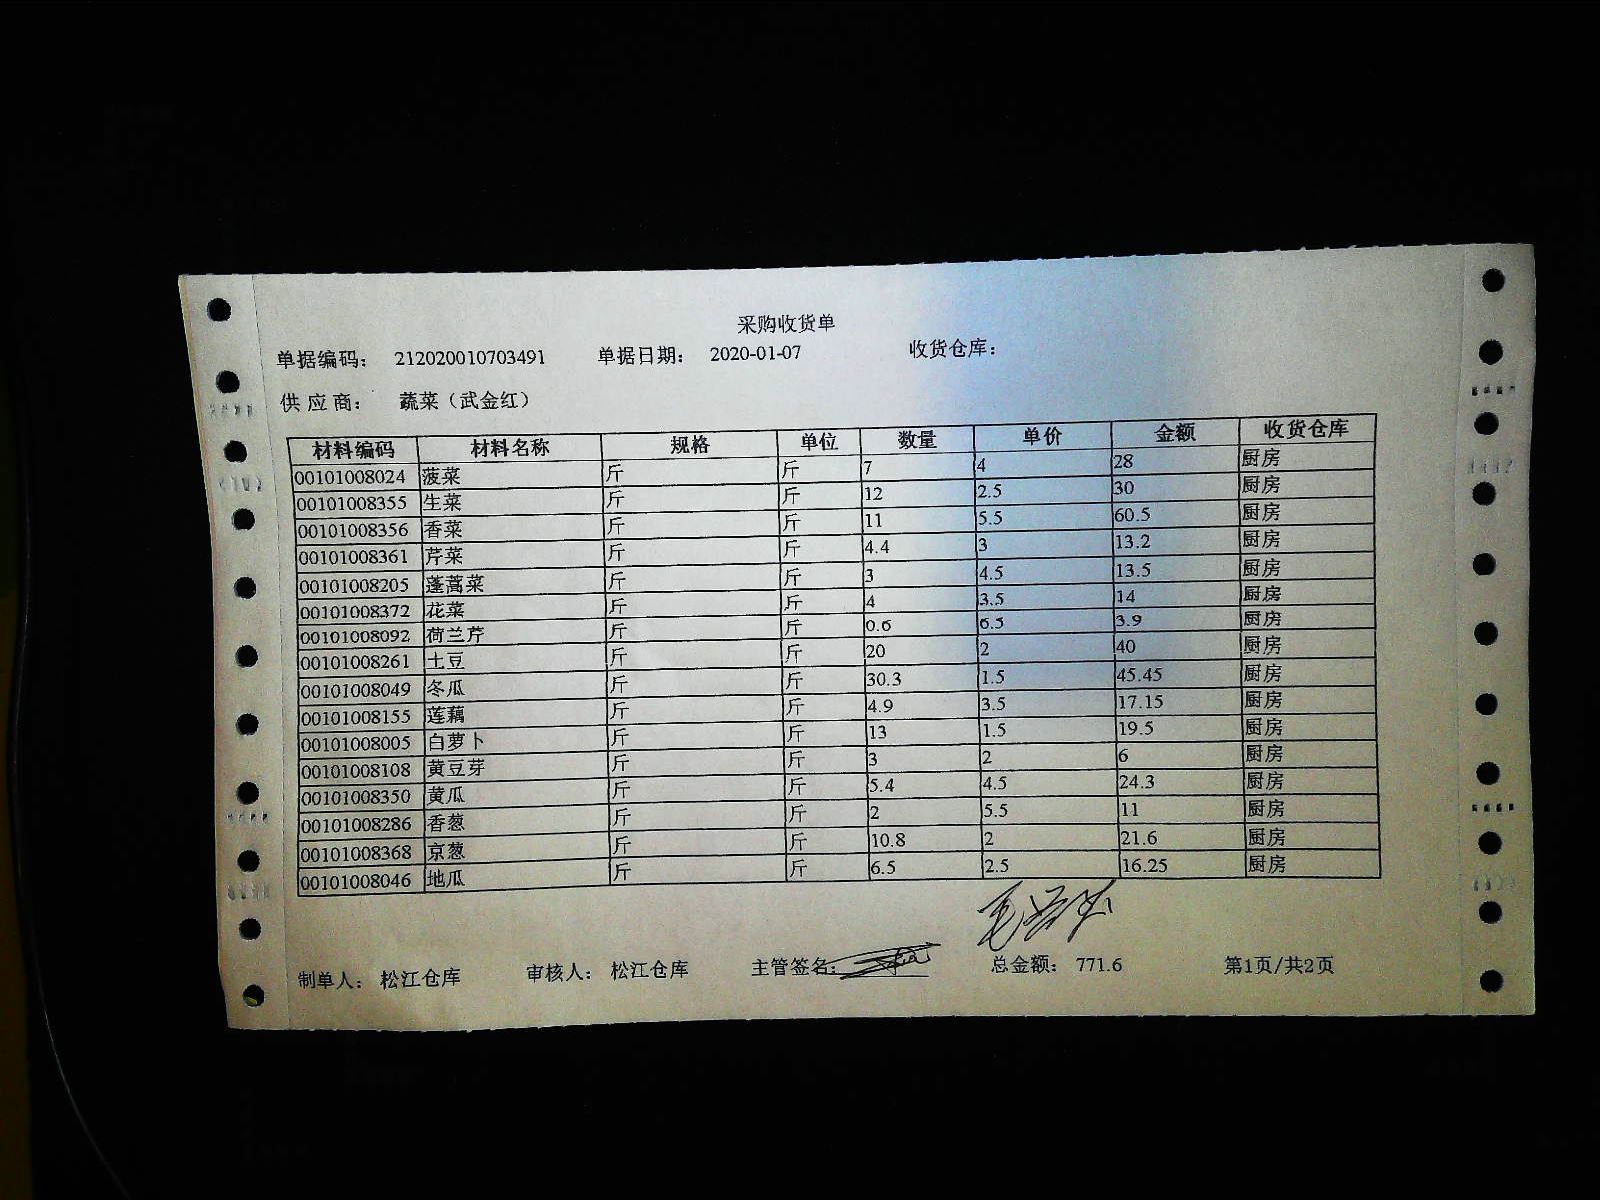 采购收货单
单据编码： 212020010703491 单据日期： 2020-01-07 收货仓库：
供 应 商： 蔬菜（武金红）
材料编码 材料名称 规格 单位 数量 单价 金额 收货仓库
00101008024 菠菜 斤 斤 7 4 28 厨房
00101008355 生菜 斤 斤 12 2.5 30 厨房
00101008356 香菜 斤 斤 11 5.5 60.5 厨房
00101008361 芹菜 斤 斤 4.4 3 13.2 厨房
00101008205 蓬蒿菜 斤 斤 3 4.5 13.5 厨房
00101008372 花菜 斤 斤 4 3.5 14 厨房
00101008092 荷兰芹 斤 斤 0.6 6.5 3.9 厨房
00101008261 土豆 斤 斤 20 2 40 厨房
00101008049 冬瓜 斤 斤 30.3 1.5 45.45 厨房
00101008155 莲藕 斤 斤 4.9 3.5 17.15 厨房
00101008005 白萝卜 斤 斤 13 1.5 19.5 厨房
00101008108 黄豆芽 斤 斤 3 2 6 厨房
00101008350 黄瓜 斤 斤 5.4 4.5 24.3 厨房
00101008286 香葱 斤 斤 2 5.5 11 厨房
00101008368 京葱 斤 斤 10.8 2 21.6 厨房
00101008046 地瓜 斤 斤 6.5 2.5 16.25 厨房
制单人： 松江仓库 审核人： 松江仓库 主管签名： 总金额： 771.6 第1页/共2页